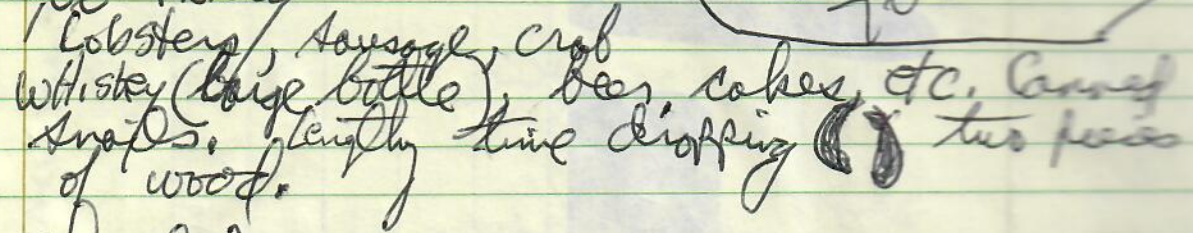 Lobsters, sausage, crab
Whiskey (large bottle), beer, cokes, etc. Canned
snails. Lengthy time dropping two pieces
of wood.